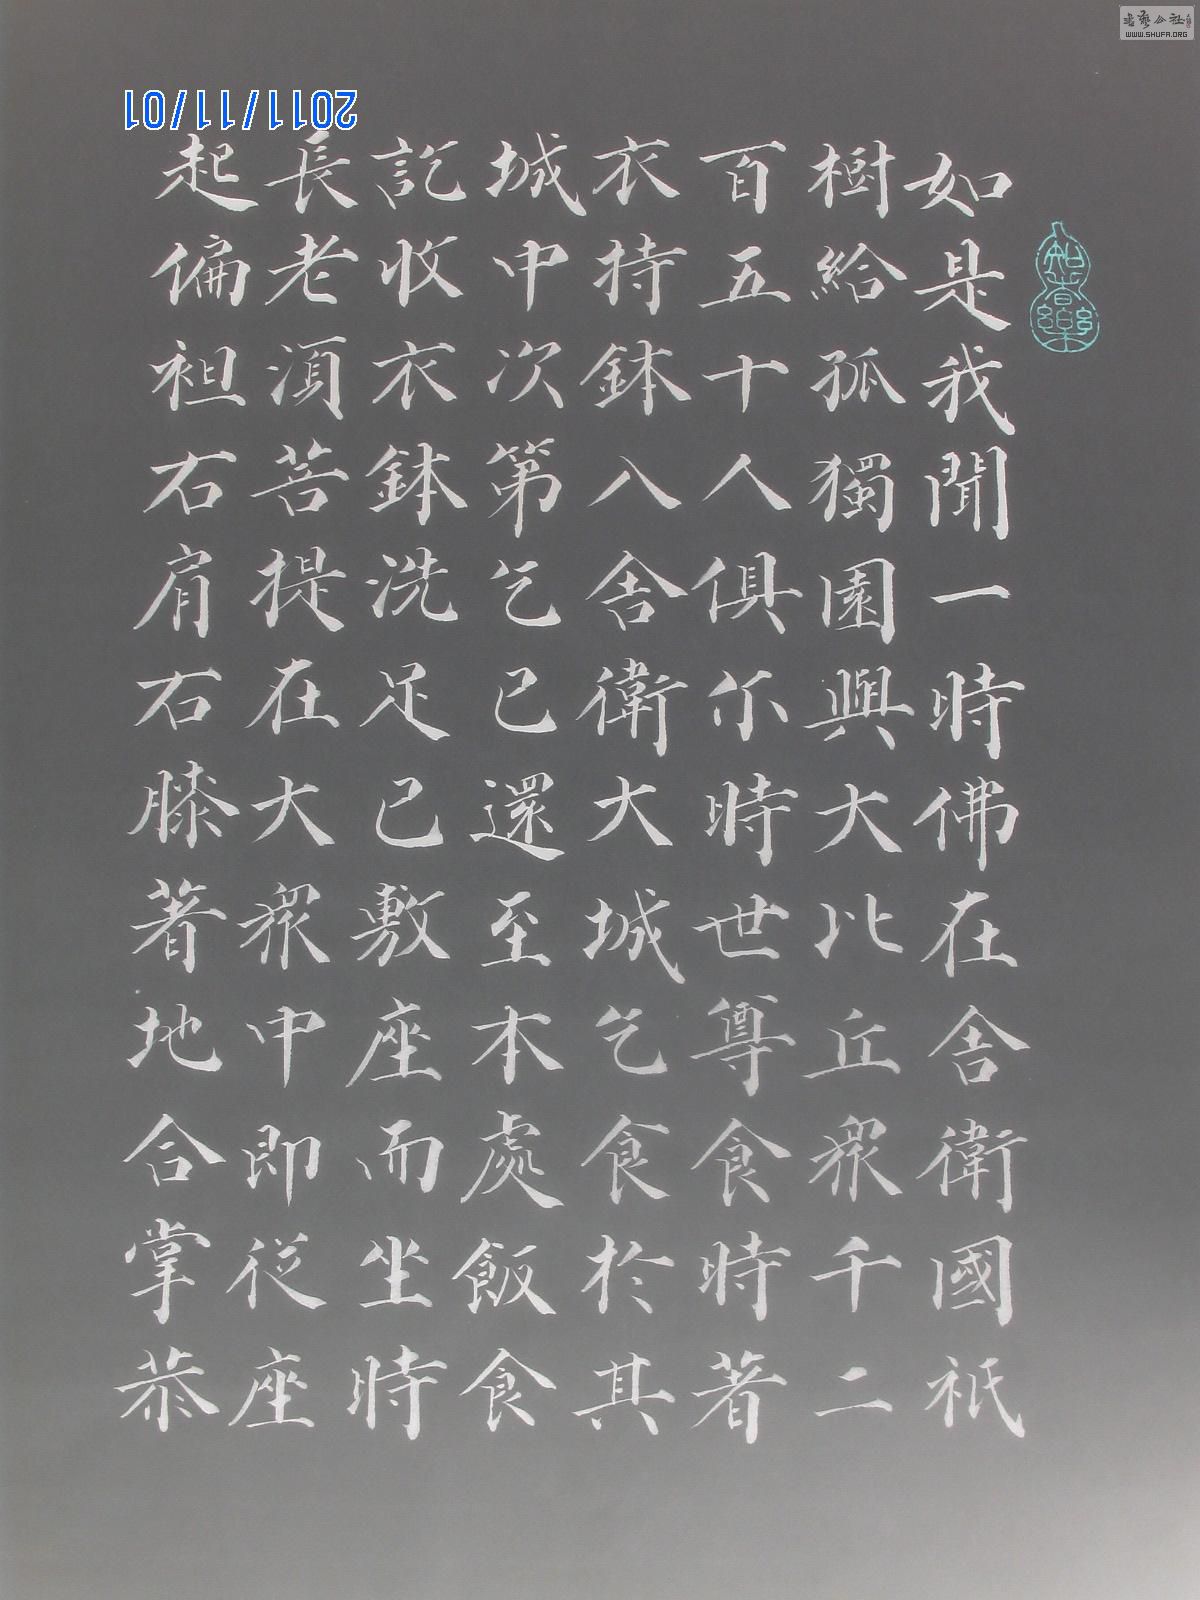 如是我聞一時佛在舍衛國祇
樹給孤獨園與大比丘眾千二
百五十人俱尔時世尊食時著
衣持鉢入舍衛大城乞食於其
城中次第乞已還至本處飯食
訖收衣鉢洗足已敷座而坐時
長老湏菩提在大眾中即從座
起偏袒右肩右膝著地合掌恭
知者樂
2011/11/01
書藝公社
WWW.SHUFA.ORG